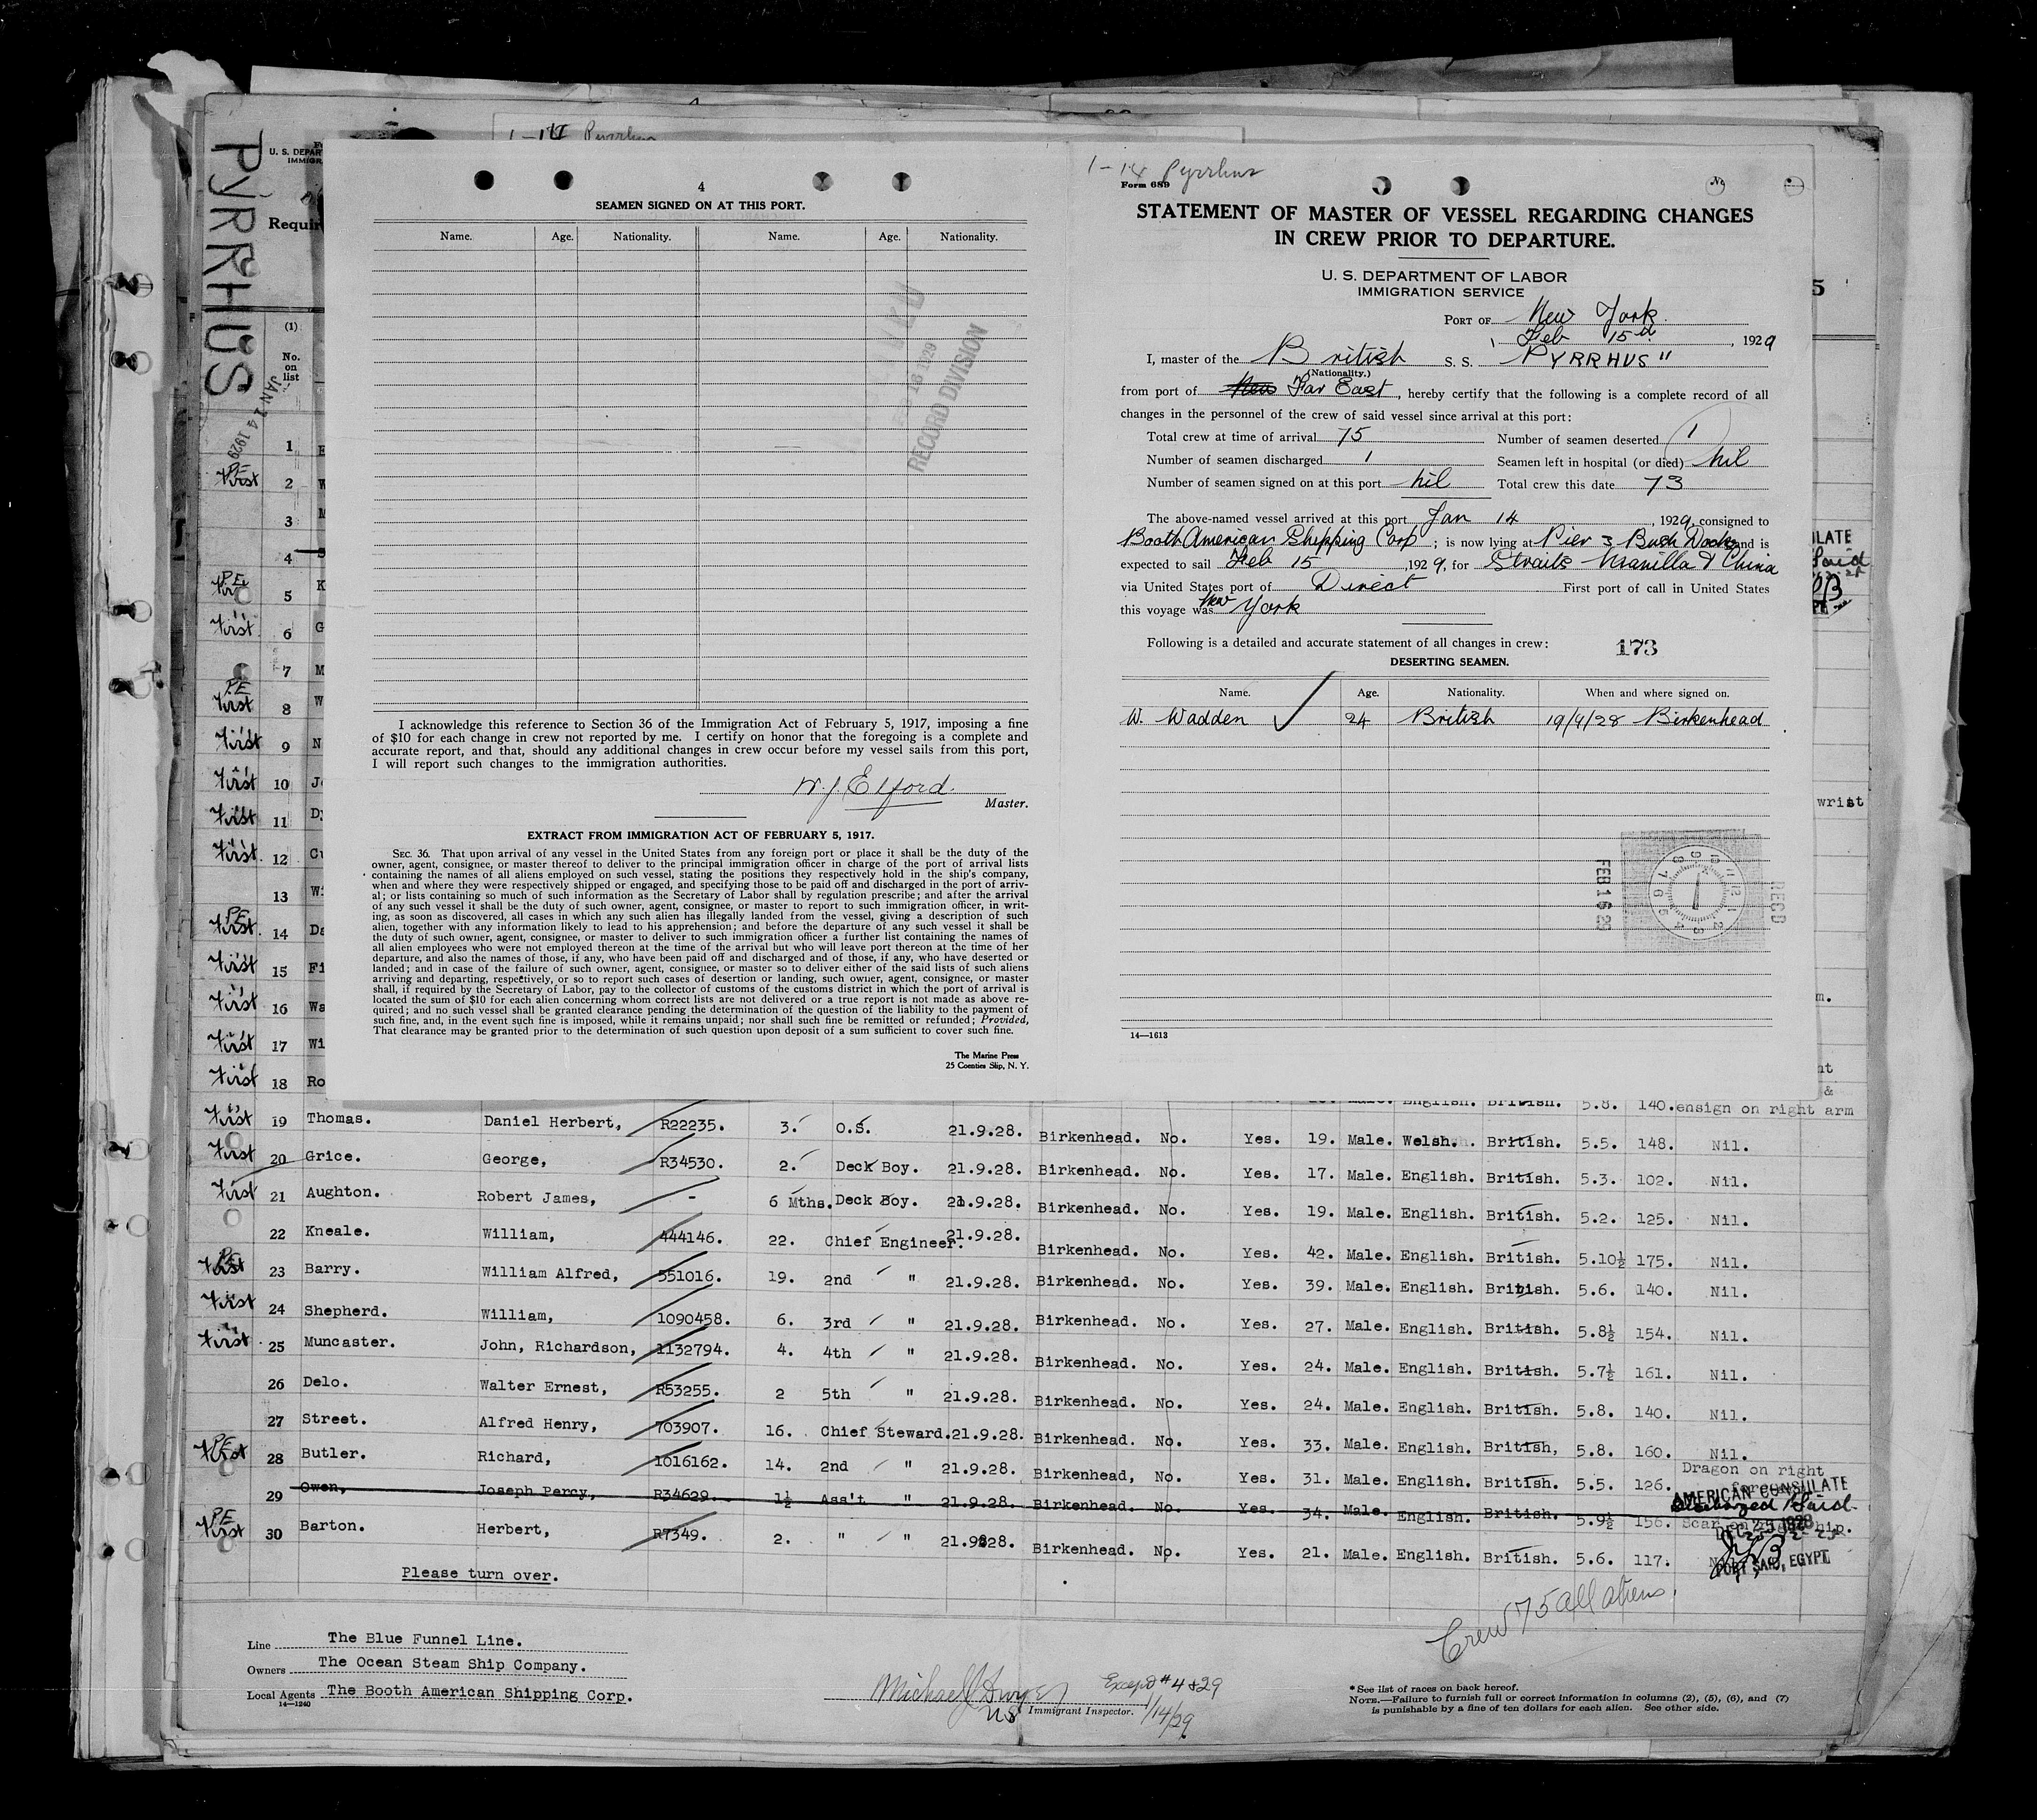 PYRRHUS
JAN 14 1929
U. S. DEPAR
IMMIGR
Requir
(1)
No.
on
list
4
SEAMEN SIGNED ON AT THIS PORT.
Name. Age. Nationality. Name. Age. Nationality.
FEB 16 1929
RECORD DIVISION
I acknowledge this reference to Section 36 of the Immigration Act of February 5, 1917, imposing a fine
of $10 for each change in crew not reported by me. I certify on honor that the foregoing is a complete and
accurate report, and that, should any additional changes in crew occur before my vessel sails from this port,
I will report such changes to the immigration authorities.
W. J. Elford.
Master.
EXTRACT FROM IMMIGRATION ACT OF FEBRUARY 5, 1917.
SEC. 36. That upon arrival of any vessel in the United States from any foreign port or place it shall be the duty of the
owner, agent, consignee, or master thereof to deliver to the principal immigration officer in charge of the port of arrival lists
containing the names of all aliens employed on such vessel, stating the positions they respectively hold in the ship's company,
when and where they were respectively shipped or engaged, and specifying those to be paid off and discharged in the port of arriv-
al; or lists containing so much of such information as the Secretary of Labor shall by regulation prescribe; and after the arrival
of any such vessel it shall be the duty of such owner, agent, consignee, or master to report to such immigration officer, in writ-
ing, as soon as discovered, all cases in which any such alien has illegally landed from the vessel, giving a description of such
alien, together with any information likely to lead to his apprehension; and before the departure of any such vessel it shall be
the duty of such owner, agent, consignee, or master to deliver to such immigration officer a further list containing the names of
all alien employees who were not employed thereon at the time of the arrival but who will leave port thereon at the time of her
departure, and also the names of those, if any, who have been paid off and discharged and of those, if any, who have deserted or
landed; and in case of the failure of such owner, agent, consignee, or master so to deliver either of the said lists of such aliens
arriving and departing, respectively, or so to report such cases of desertion or landing, such owner, agent, consignee, or master
shall, if required by the Secretary of Labor, pay to the collector of customs of the customs district in which the port of arrival is
located the sum of $10 for each alien concerning whom correct lists are not delivered or a true report is not made as above re-
quired; and no such vessel shall be granted clearance pending the determination of the question of the liability to the payment of
such fine, and, in the event such fine is imposed, while it remains unpaid; nor shall such fine be remitted or refunded; Provided,
That clearance may be granted prior to the determination of such question upon deposit of a sum sufficient to cover such fine.
The Marine Press
25 Coenties Slip, N. Y.
1-14 Pyrrhus
Form 689
STATEMENT OF MASTER OF VESSEL REGARDING CHANGES
IN CREW PRIOR TO DEPARTURE.
U. S. DEPARTMENT OF LABOR
IMMIGRATION SERVICE
PORT OF New York.
Feb 15th, 1929
I, master of the British S. S. "PYRRHUS"
(Nationality.)
from port of New Far East, hereby certify that the following is a complete record of all
changes in the personnel of the crew of said vessel since arrival at this port:
Total crew at time of arrival 75 Number of seamen deserted 1
Number of seamen discharged 1 Seamen left in hospital (or died) nil
Number of seamen signed on at this port nil Total crew this date 73
The above-named vessel arrived at this port Jan 14, 1929, consigned to
Booth American Shipping Corp; is now lying at Pier 3 Bush Docks and is
expected to sail Feb 15, 1929, for Straits Manilla & China
via United States port of Direct First port of call in United States
this voyage was New York
Following is a detailed and accurate statement of all changes in crew: 173
DESERTING SEAMEN.
Name. Age. Nationality. When and where signed on.
W. Wadden 24 British 19/9/28 Birkenhead
REC'D
FEB 16 29
14—1613
1
PE First 2
3
4
PE First 5
First 6 G
7 M
PE First 8 W
First 9 N
First 10 Jo
First 11 Dy
First 12 Cu
13 Wi
PE First 14 Da
First 15 Fi
First 16 Wa
First 17 Wi
First 18 Ro
wrist
English. British. 5.8. 140. ensign on right arm
First 19 Thomas. Daniel Herbert, R22235. 3. O.S. 21.9.28. Birkenhead. No. Yes. 19. Male. Welsh. British. 5.5. 148. Nil.
First 20 Grice. George, R34530. 2. Deck Boy. 21.9.28. Birkenhead. No. Yes. 17. Male. English. British. 5.3. 102. Nil.
First 21 Aughton. Robert James, - 6 Mths. Deck Boy. 21.9.28. Birkenhead. No. Yes. 19. Male. English. British. 5.2. 125. Nil.
22 Kneale. William, 444146. 22. Chief Engineer. 21.9.28. Birkenhead. No. Yes. 42. Male. English. British. 5.10½ 175. Nil.
PE First 23 Barry. William Alfred, 551016. 19. 2nd " 21.9.28. Birkenhead. No. Yes. 39. Male. English. British. 5.6. 140. Nil.
First 24 Shepherd. William, 1090458. 6. 3rd " 21.9.28. Birkenhead. No. Yes. 27. Male. English. British. 5.8½ 154. Nil.
First 25 Muncaster. John, Richardson, 1132794. 4. 4th " 21.9.28. Birkenhead. No. Yes. 24. Male. English. British. 5.7½ 161. Nil.
26 Delo. Walter Ernest, R53255. 2 5th " 21.9.28. Birkenhead. No. Yes. 24. Male. English. British. 5.8. 140. Nil.
27 Street. Alfred Henry, 703907. 16. Chief Steward. 21.9.28. Birkenhead. No. Yes. 33. Male. English. British, 5.8. 160. Nil.
PE First 28 Butler. Richard, 1016162. 14. 2nd " 21.9.28. Birkenhead, No. Yes. 31. Male. English. British. 5.5. 126. Dragon on right
29 Owen, Joseph Percy, R34629. 1½ Ass't " 21.9.28. Birkenhead. No. Yes. 34. Male. English. British. 5.9½ 156. Scar on hip.
PE First 30 Barton. Herbert, R7349. 2. " " 21.9.28. Birkenhead. No. Yes. 21. Male. English. British. 5.6. 117.
AMERICAN CONSULATE
Discharged P. Said
DEC 25 1928
PORT SAID, EGYPT
Please turn over.
Crew 75 all aliens.
Line The Blue Funnel Line.
Owners The Ocean Steam Ship Company.
Local Agents The Booth American Shipping Corp.
14—1240
Michael J Dwyer
Immigrant Inspector.
Except # 4 & 29
1/14/29
* See list of races on back hereof.
NOTE.—Failure to furnish full or correct information in columns (2), (5), (6), and (7)
is punishable by a fine of ten dollars for each alien. See other side.